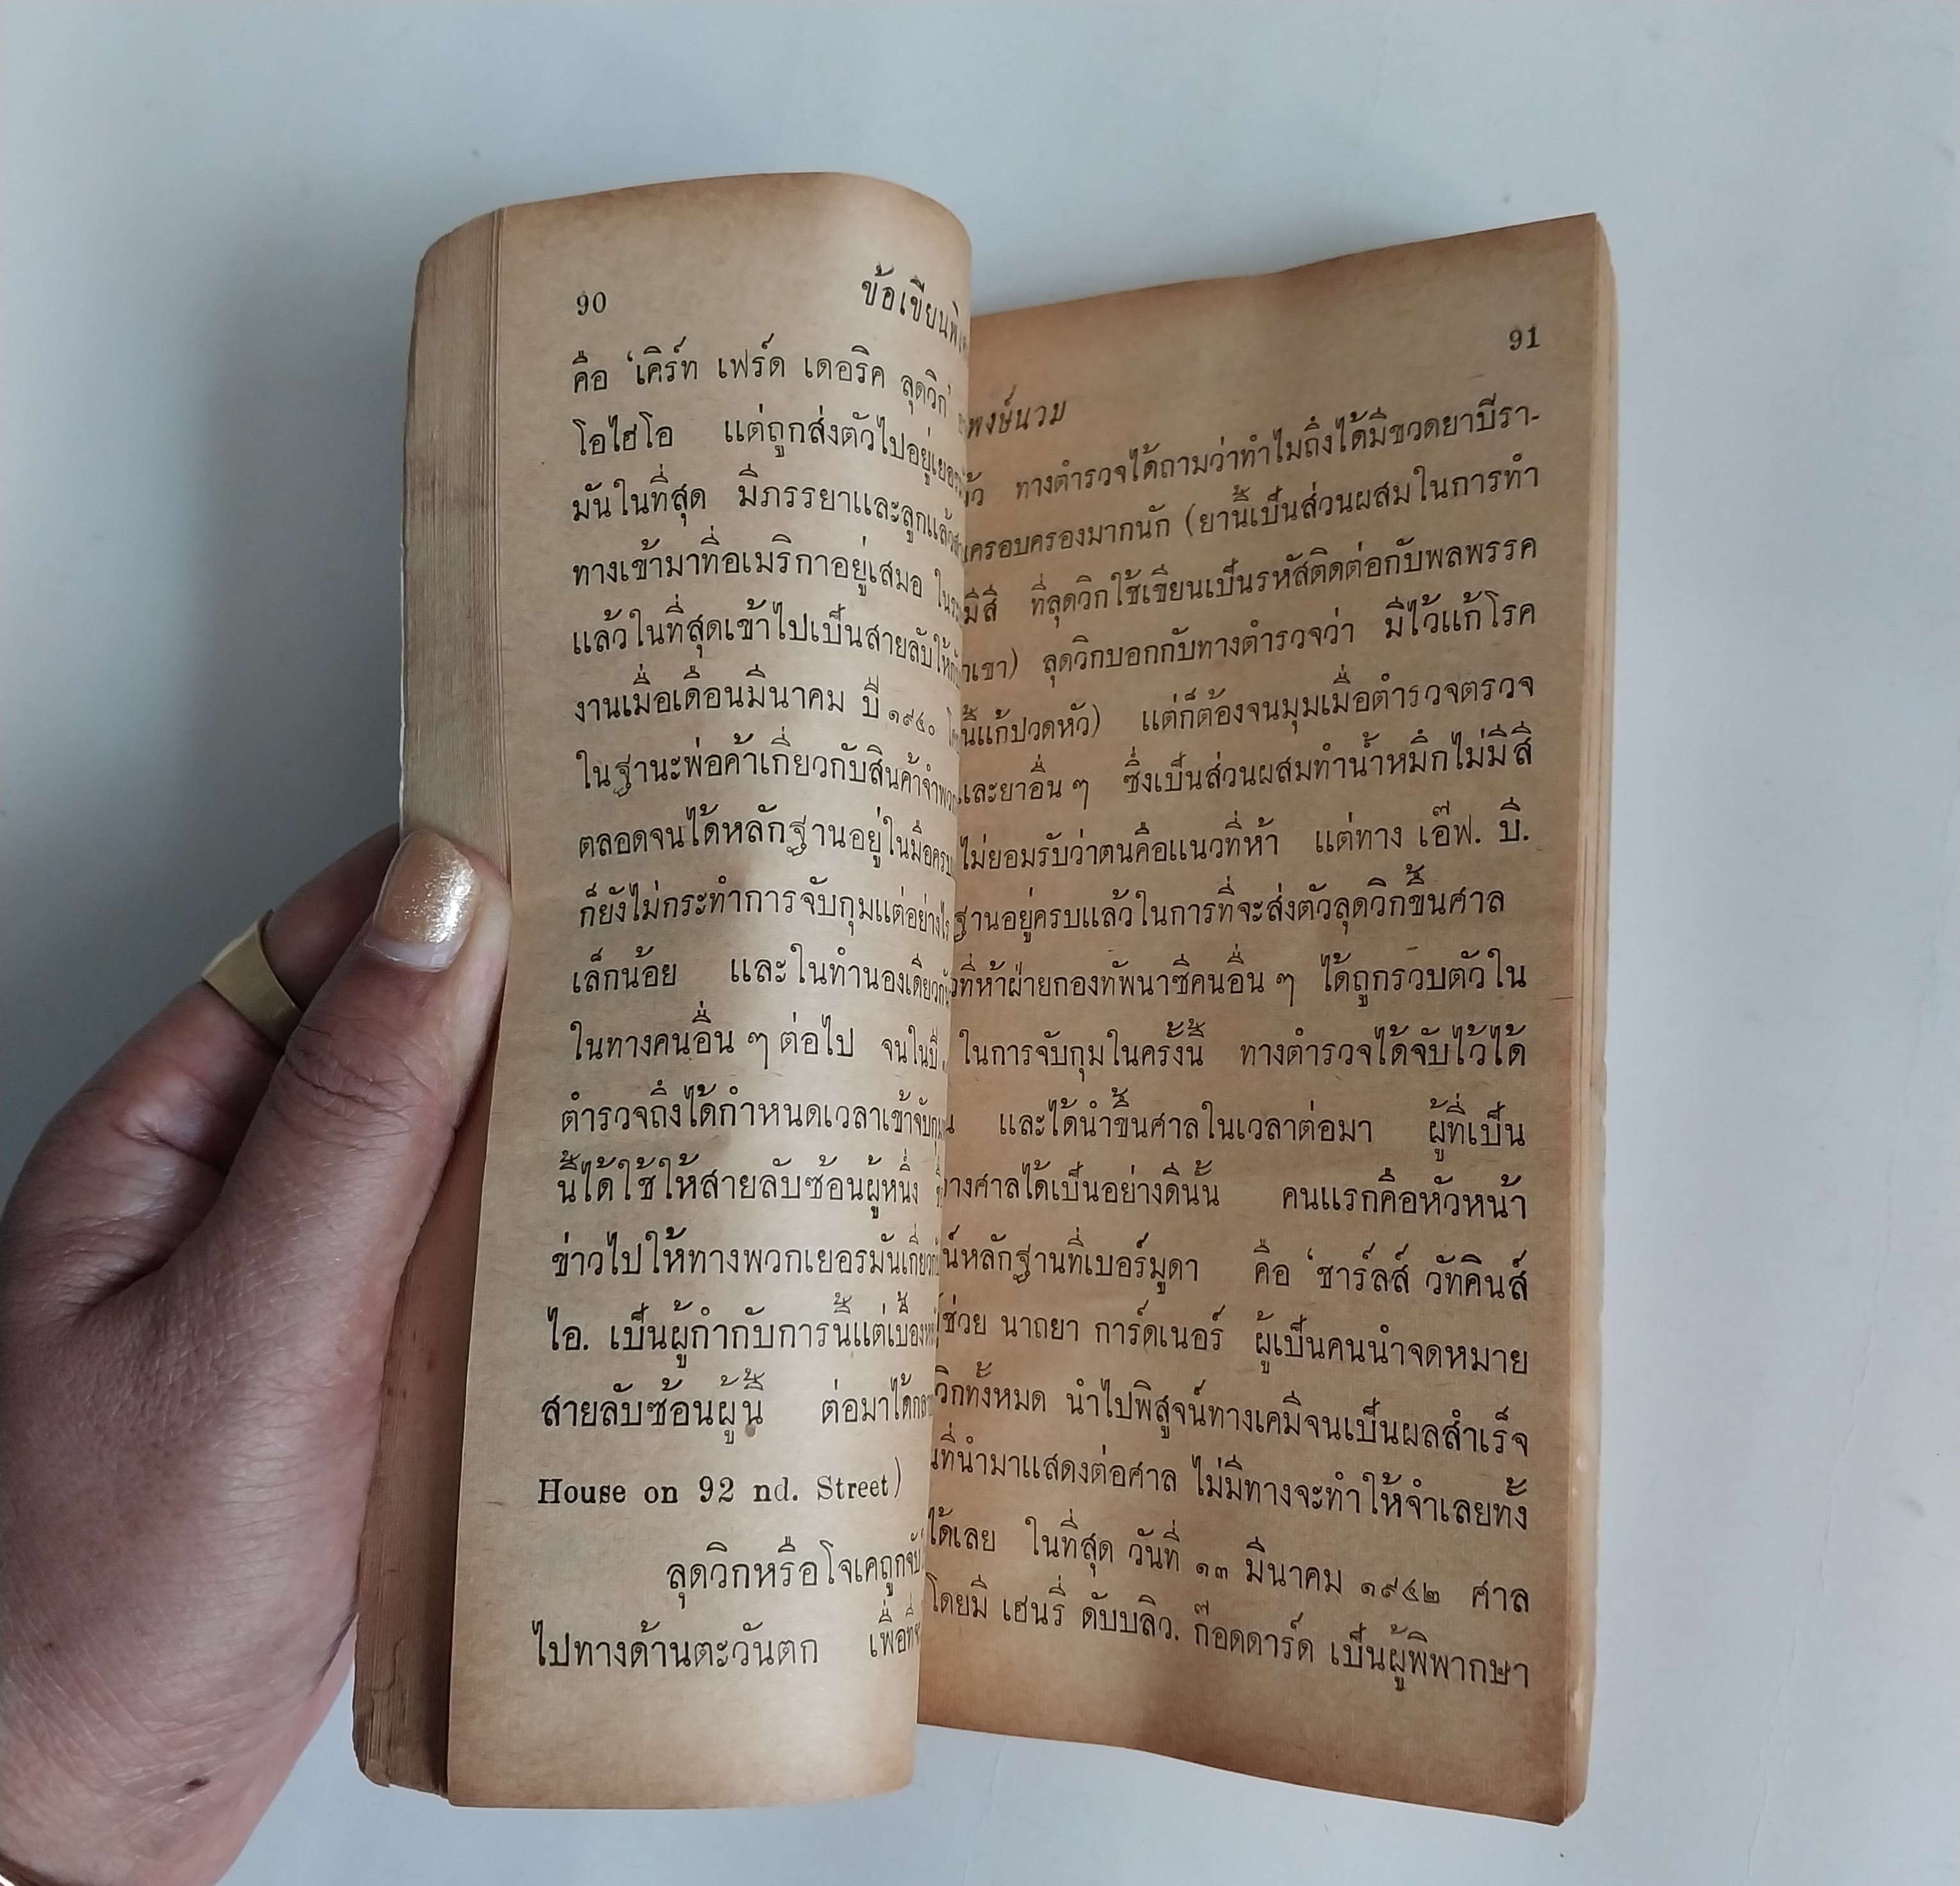 90
คือ ‘เคิร์ท เฟร์ด เดอริค ลุดวิก’
โอไฮโอ แต่ถูกส่งตัวไปอยู่
มันในที่สุด มีภรรยาและลูกแล้ว
ทางเข้ามาที่อเมริกาอยู่เสมอ ใน
แล้วในที่สุดเข้าไปเป็นสายลับให้
งานเมื่อเดือนมีนาคม ปี ๑๙๔๐
ในฐานะพ่อค้าเกี่ยวกับสินค้าจำพวก
ตลอดจนได้หลักฐานอยู่ในมือครบ
ก็ยังไม่กระทำการจับกุมแต่อย่างไร
เล็กน้อย และในทำนองเดียวกัน
ในทางคนอื่น ๆ ต่อไป จนในปี
ตำรวจถึงได้กำหนดเวลาเข้าจับกุม
นี้ได้ใช้ให้สายลับซ้อนผู้หนึ่ง
ข่าวไปให้ทางพวกเยอรมันเกี่ยวกับ
ไอ. เป็นผู้กำกับการนี้แต่เบื้อง
สายลับซ้อนผู้นี้ ต่อมาได้
House on 92 nd. Street)
ลุดวิกหรือโจเคถูกจับ
ไปทางด้านตะวันตก
91
พงษ์นวม
ทางตำรวจได้ถามว่าทำไมถึงได้มีขวดยาบีรา-
ครอบครองมากนัก (ยานี้เป็นส่วนผสมในการทำ
มีสี ที่ลุดวิกใช้เขียนเป็นรหัสติดต่อกับพลพรรค
เขา) ลุดวิกบอกกับทางตำรวจว่า มีไว้แก้โรค
นี้แก้ปวดหัว) แต่ก็ต้องจนมุมเมื่อตำรวจตรวจ
และยาอื่น ๆ ซึ่งเป็นส่วนผสมทำน้ำหมึกไม่มีสี
ไม่ยอมรับว่าตนคือแนวที่ห้า แต่ทาง เอ๊ฟ. บี.
ฐานอยู่ครบแล้วในการที่จะส่งตัวลุดวิกขึ้นศาล
ที่ห้าฝ่ายกองทัพนาซีคนอื่น ๆ ได้ถูกรวบตัวใน
ในการจับกุมในครั้งนี้ ทางตำรวจได้จับไว้ได้
และได้นำขึ้นศาลในเวลาต่อมา ผู้ที่เป็น
ทางศาลได้เป็นอย่างดีนั้น คนแรกคือหัวหน้า
หลักฐานที่เบอร์มูดา คือ ‘ชาร์ลส์ วัทคินส์
ช่วย นาถยา การ์ดเนอร์ ผู้เป็นคนนำจดหมาย
วิกทั้งหมด นำไปพิสูจน์ทางเคมีจนเป็นผลสำเร็จ
ที่นำมาแสดงต่อศาล ไม่มีทางจะทำให้จำเลยทั้ง
ได้เลย ในที่สุด วันที่ ๑๓ มีนาคม ๑๙๔๒ ศาล
โดยมี เฮนรี่ ดับบลิว. ก๊อดดาร์ด เป็นผู้พิพากษา